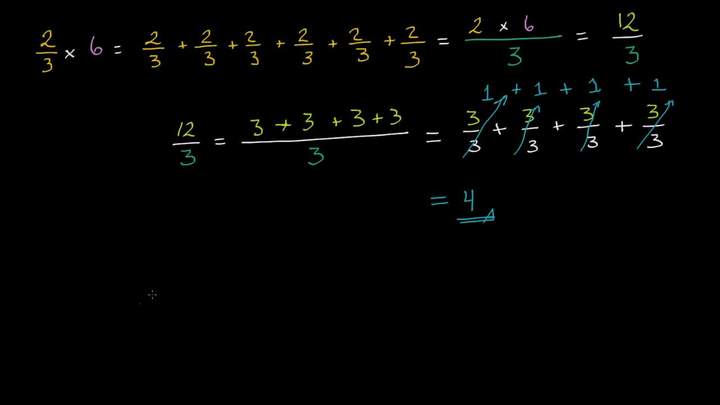 2/3 × 6 = 2/3 + 2/3 + 2/3 + 2/3 + 2/3 + 2/3 = 2 × 6/3 = 12/3
1 + 1 + 1 + 1
12/3 = 3 + 3 + 3 + 3/3 = 3/3 + 3/3 + 3/3 + 3/3
= 4